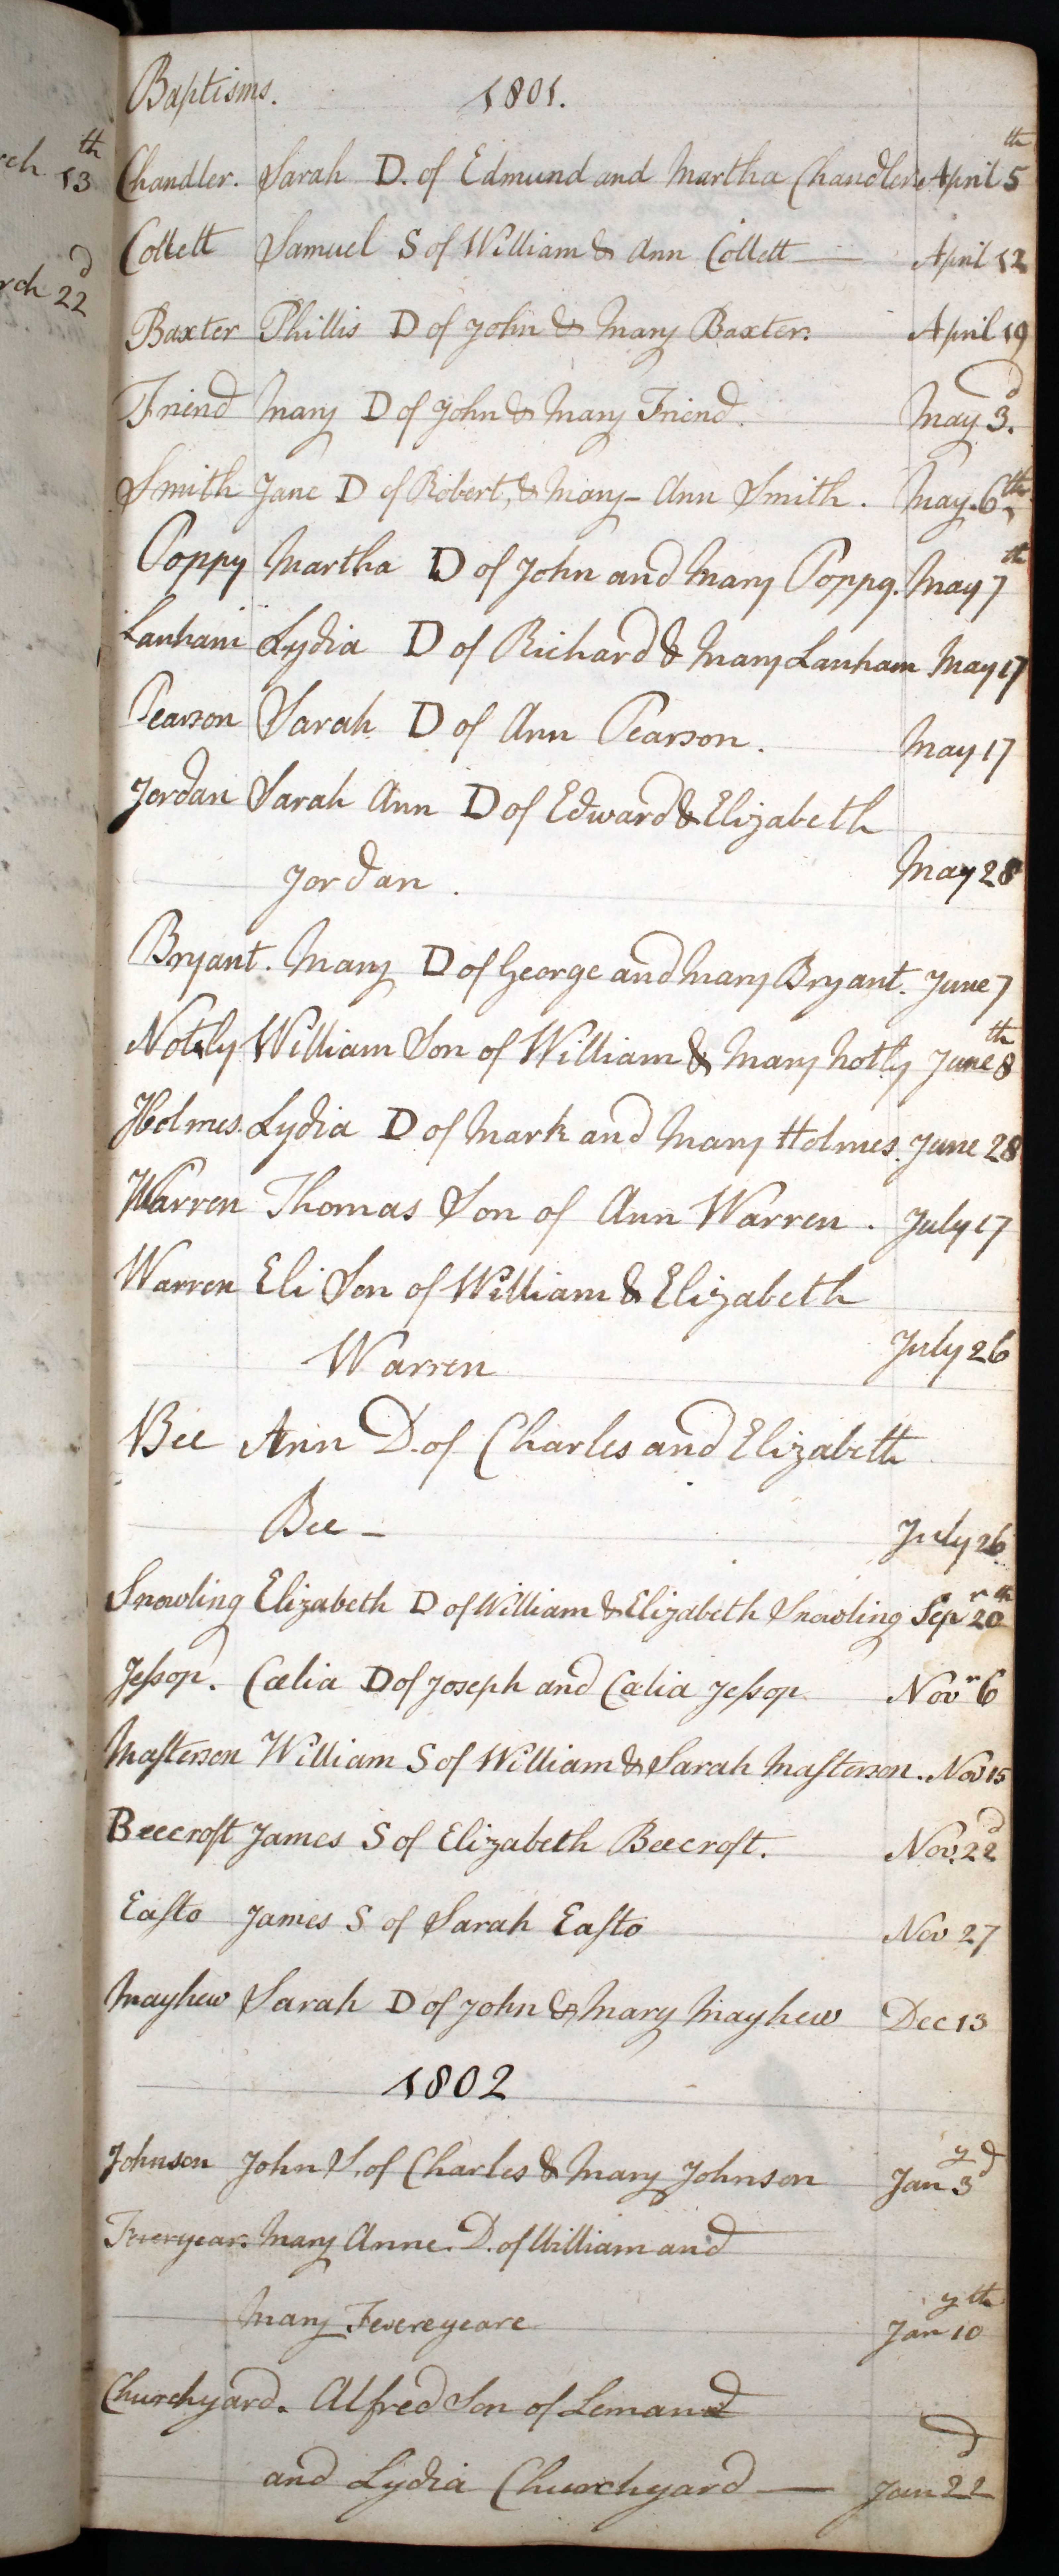 Baptisms. 1801.
Chandler. Sarah D. of Edmund and Martha Chandler April 5th
Collett Samuel S of William & Ann Collett — April 12
Baxter Phillis D of John & Mary Baxter. April 19
Friend Mary D of John & Mary Friend. May 3d.
Smith Jane D of Robert, & Mary-Ann Smith. May. 6th
Poppy Martha D of John and Mary Poppy. May 7th
Lanham Lydia D of Richard & Mary Lanham May 17
Pearson Sarah D of Ann Pearson. May 17
Jordan Sarah Ann D of Edward & Elizabeth
Jordan. May 28
Bryant. Mary D of George and Mary Bryant. June 7
Notly William Son of William & Mary Notly June 8th
Holmes. Lydia D of Mark and Mary Holmes. June 28
Warren Thomas Son of Ann Warren. July 17
Warren Eli Son of William & Elizabeth
Warren July 26
Bee Ann D. of Charles and Elizabeth
Bee - July 26
Snowling Elizabeth D of William & Elizabeth Snowling Sepr 20th
Jeſsop. Cælia D of Joseph and Cælia Jeſsop Novr 6
Maſterson William S of William & Sarah Maſterson. Nov 15
Beecroft James S of Elizabeth Beecroft. Nov. 22d
Eaſto James S of Sarah Eaſto Nov 27
Mayhew Sarah D of John & Mary Mayhew Dec 13
1802
Johnson John S. of Charles & Mary Johnson Jany 3d
Fevereyear. Mary Anne. D. of William and
Mary Fevereyeare Jany 10th
Churchyard. Alfred Son of Leman
and Lydia Churchyard — Jan 22d
rch 13th
rch 22d